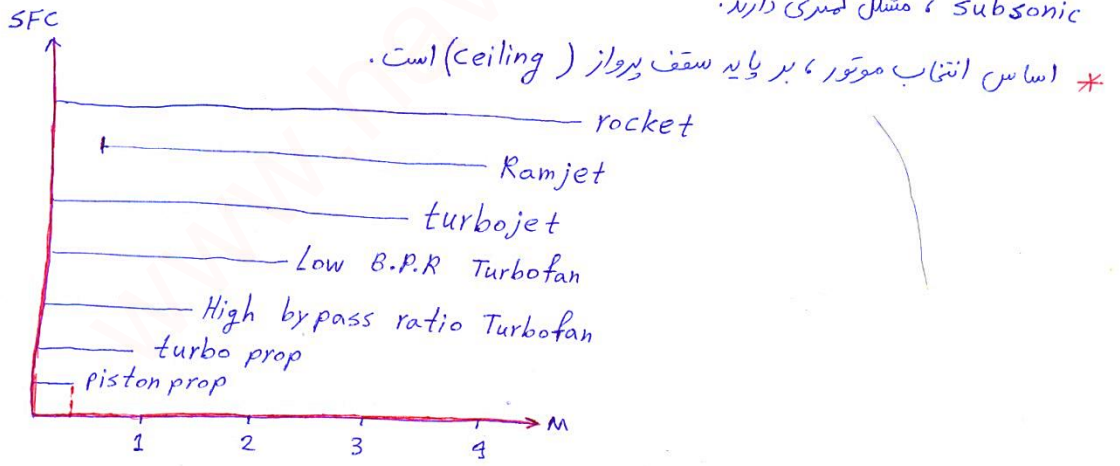 subsonic ، مشکل کمتری دارند.
* اساس انتخاب موتور ، بر پایه سقف پرواز (ceiling) است.
SFC
rocket
Ramjet
turbojet
Low B.P.R Turbofan
High bypass ratio Turbofan
turbo prop
piston prop
M
1 2 3 4